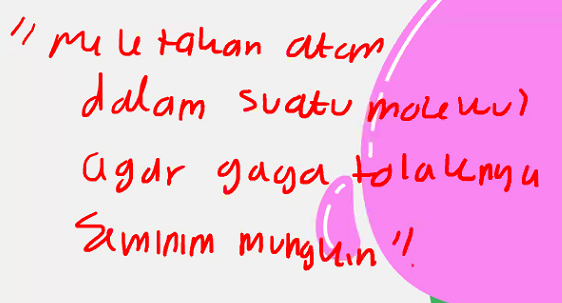 "Meletakan atom
dalam suatu molekul
agar gaya tolaknya
seminim mungkin".